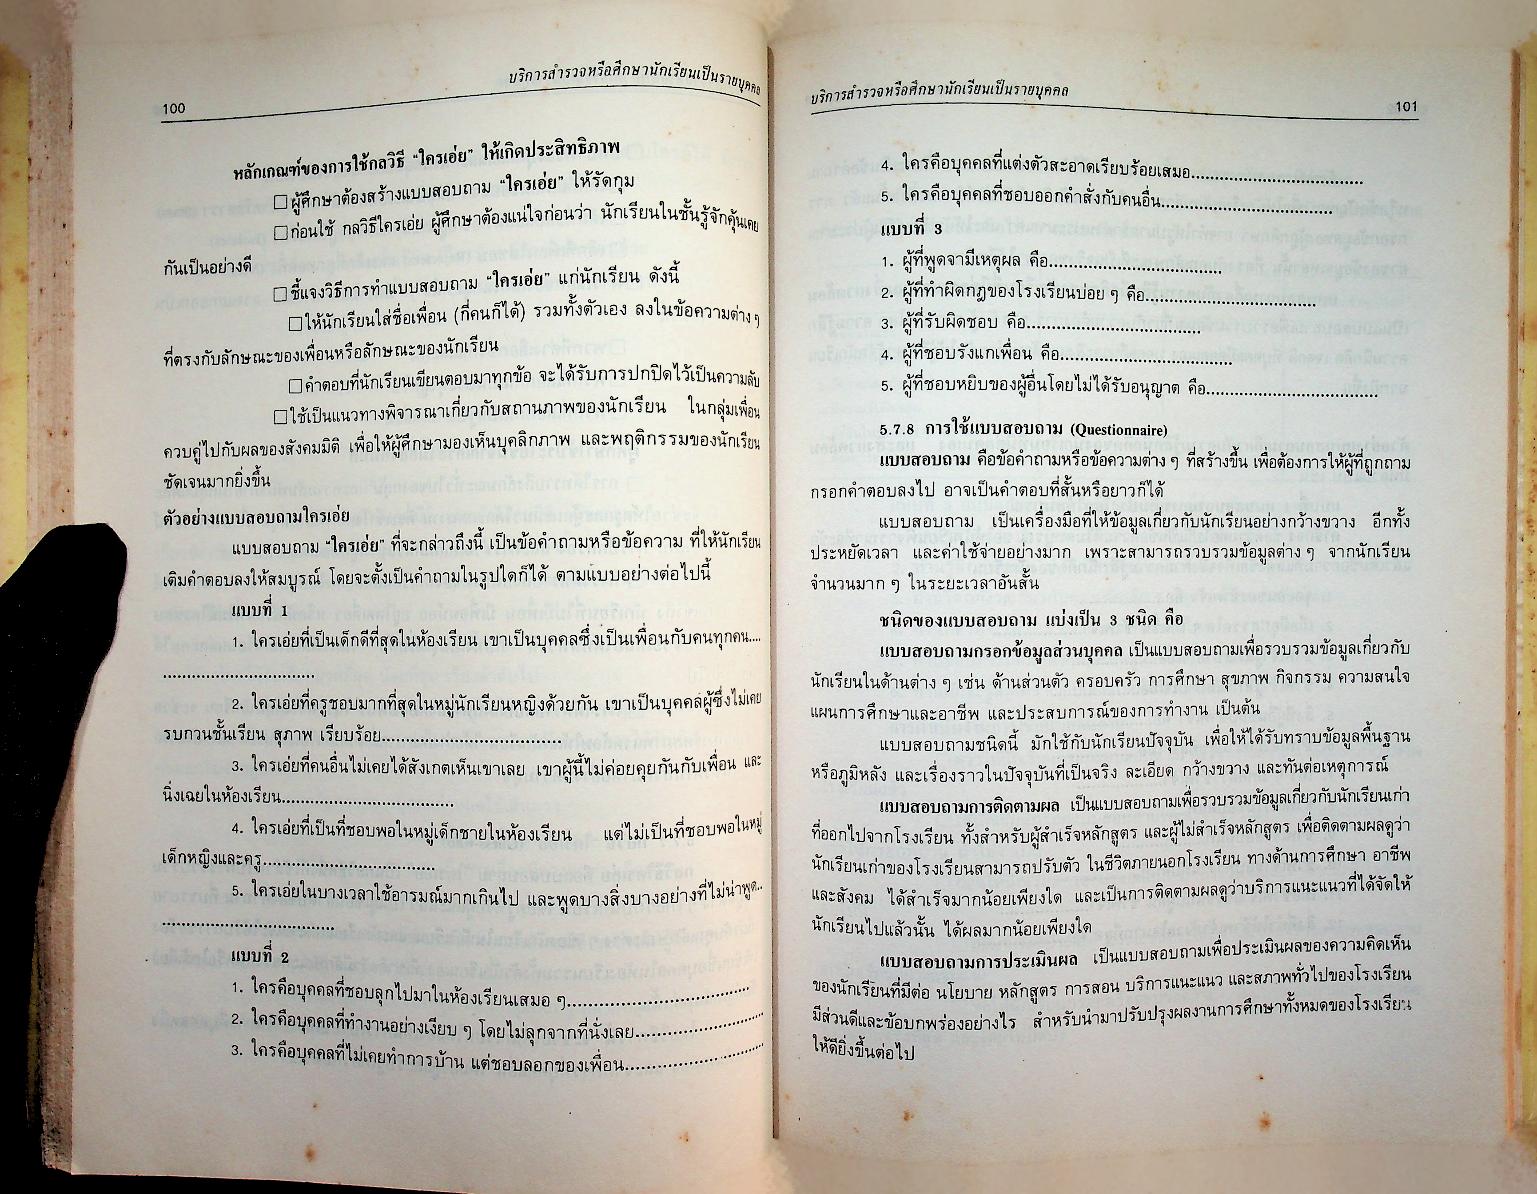 100
บริการสำรวจหรือศึกษานักเรียนเป็นรายบุคคล
หลักเกณฑ์ของการใช้กลวิธี “ใครเอ่ย” ให้เกิดประสิทธิภาพ
□ ผู้ศึกษาต้องสร้างแบบสอบถาม “ใครเอ่ย” ให้รัดกุม
□ ก่อนใช้ กลวิธีใครเอ่ย ผู้ศึกษาต้องแน่ใจก่อนว่า นักเรียนในชั้นรู้จักคุ้นเคย
กันเป็นอย่างดี
□ ชี้แจงวิธีการทำแบบสอบถาม “ใครเอ่ย” แก่นักเรียน ดังนี้
□ ให้นักเรียนใส่ชื่อเพื่อน (กี่คนก็ได้) รวมทั้งตัวเอง ลงในข้อความต่าง ๆ
ที่ตรงกับลักษณะของเพื่อนหรือลักษณะของนักเรียน
□ คำตอบที่นักเรียนเขียนตอบมาทุกข้อ จะได้รับการปกปิดไว้เป็นความลับ
□ ใช้เป็นแนวทางพิจารณาเกี่ยวกับสถานภาพของนักเรียน ในกลุ่มเพื่อน
ควบคู่ไปกับผลของสังคมมิติ เพื่อให้ผู้ศึกษามองเห็นบุคลิกภาพ และพฤติกรรมของนักเรียน
ชัดเจนมากยิ่งขึ้น
ตัวอย่างแบบสอบถามใครเอ่ย
แบบสอบถาม “ใครเอ่ย” ที่จะกล่าวถึงนี้ เป็นข้อคำถามหรือข้อความ ที่ให้นักเรียน
เติมคำตอบลงให้สมบูรณ์ โดยจะตั้งเป็นคำถามในรูปใดก็ได้ ตามแบบอย่างต่อไปนี้
แบบที่ 1
1. ใครเอ่ยที่เป็นเด็กดีที่สุดในห้องเรียน เขาเป็นบุคคลซึ่งเป็นเพื่อนกับคนทุกคน....
................................
2. ใครเอ่ยที่ครูชอบมากที่สุดในหมู่นักเรียนหญิงด้วยกัน เขาเป็นบุคคลผู้ซึ่งไม่เคย
รบกวนชั้นเรียน สุภาพ เรียบร้อย......................................
3. ใครเอ่ยที่คนอื่นไม่เคยได้สังเกตเห็นเขาเลย เขาผู้นี้ไม่ค่อยคุยกันกับเพื่อน และ
นิ่งเฉยในห้องเรียน....................................
4. ใครเอ่ยที่เป็นที่ชอบพอในหมู่เด็กชายในห้องเรียน แต่ไม่เป็นที่ชอบพอในหมู่
เด็กหญิงและครู....................................
5. ใครเอ่ยในบางเวลาใช้อารมณ์มากเกินไป และพูดบางสิ่งบางอย่างที่ไม่น่าพูด..
....................................
แบบที่ 2
1. ใครคือบุคคลที่ชอบลุกไปมาในห้องเรียนเสมอ ๆ......................................
2. ใครคือบุคคลที่ทำงานอย่างเงียบ ๆ โดยไม่ลุกจากที่นั่งเลย...........................
3. ใครคือบุคคลที่ไม่เคยทำการบ้าน แต่ชอบลอกของเพื่อน.............................
บริการสำรวจหรือศึกษานักเรียนเป็นรายบุคคล
101
4. ใครคือบุคคลที่แต่งตัวสะอาดเรียบร้อยเสมอ....................................
5. ใครคือบุคคลที่ชอบออกคำสั่งกับคนอื่น....................................
แบบที่ 3
1. ผู้ที่พูดจามีเหตุผล คือ....................................
2. ผู้ที่ทำผิดกฎของโรงเรียนบ่อย ๆ คือ....................................
3. ผู้ที่รับผิดชอบ คือ....................................
4. ผู้ที่ชอบรังแกเพื่อน คือ....................................
5. ผู้ที่ชอบหยิบของผู้อื่นโดยไม่ได้รับอนุญาต คือ....................................
5.7.8 การใช้แบบสอบถาม (Questionnaire)
แบบสอบถาม คือข้อคำถามหรือข้อความต่าง ๆ ที่สร้างขึ้น เพื่อต้องการให้ผู้ที่ถูกถาม
กรอกคำตอบลงไป อาจเป็นคำตอบที่สั้นหรือยาวก็ได้
แบบสอบถาม เป็นเครื่องมือที่ให้ข้อมูลเกี่ยวกับนักเรียนอย่างกว้างขวาง อีกทั้ง
ประหยัดเวลา และค่าใช้จ่ายอย่างมาก เพราะสามารถรวบรวมข้อมูลต่าง ๆ จากนักเรียน
จำนวนมาก ๆ ในระยะเวลาอันสั้น
ชนิดของแบบสอบถาม แบ่งเป็น 3 ชนิด คือ
แบบสอบถามกรอกข้อมูลส่วนบุคคล เป็นแบบสอบถามเพื่อรวบรวมข้อมูลเกี่ยวกับ
นักเรียนในด้านต่าง ๆ เช่น ด้านส่วนตัว ครอบครัว การศึกษา สุขภาพ กิจกรรม ความสนใจ
แผนการศึกษาและอาชีพ และประสบการณ์ของการทำงาน เป็นต้น
แบบสอบถามชนิดนี้ มักใช้กับนักเรียนปัจจุบัน เพื่อให้ได้รับทราบข้อมูลพื้นฐาน
หรือภูมิหลัง และเรื่องราวในปัจจุบันที่เป็นจริง ละเอียด กว้างขวาง และทันต่อเหตุการณ์
แบบสอบถามการติดตามผล เป็นแบบสอบถามเพื่อรวบรวมข้อมูลเกี่ยวกับนักเรียนเก่า
ที่ออกไปจากโรงเรียน ทั้งสำหรับผู้สำเร็จหลักสูตร และผู้ไม่สำเร็จหลักสูตร เพื่อติดตามผลดูว่า
นักเรียนเก่าของโรงเรียนสามารถปรับตัว ในชีวิตภายนอกโรงเรียน ทางด้านการศึกษา อาชีพ
และสังคม ได้สำเร็จมากน้อยเพียงใด และเป็นการติดตามผลดูว่าบริการแนะแนวที่ได้จัดให้
นักเรียนไปแล้วนั้น ได้ผลมากน้อยเพียงใด
แบบสอบถามการประเมินผล เป็นแบบสอบถามเพื่อประเมินผลของความคิดเห็น
ของนักเรียนที่มีต่อ นโยบาย หลักสูตร การสอน บริการแนะแนว และสภาพทั่วไปของโรงเรียน
มีส่วนดีและข้อบกพร่องอย่างไร สำหรับนำมาปรับปรุงผลงานการศึกษาทั้งหมดของโรงเรียน
ให้ดียิ่งขึ้นต่อไป